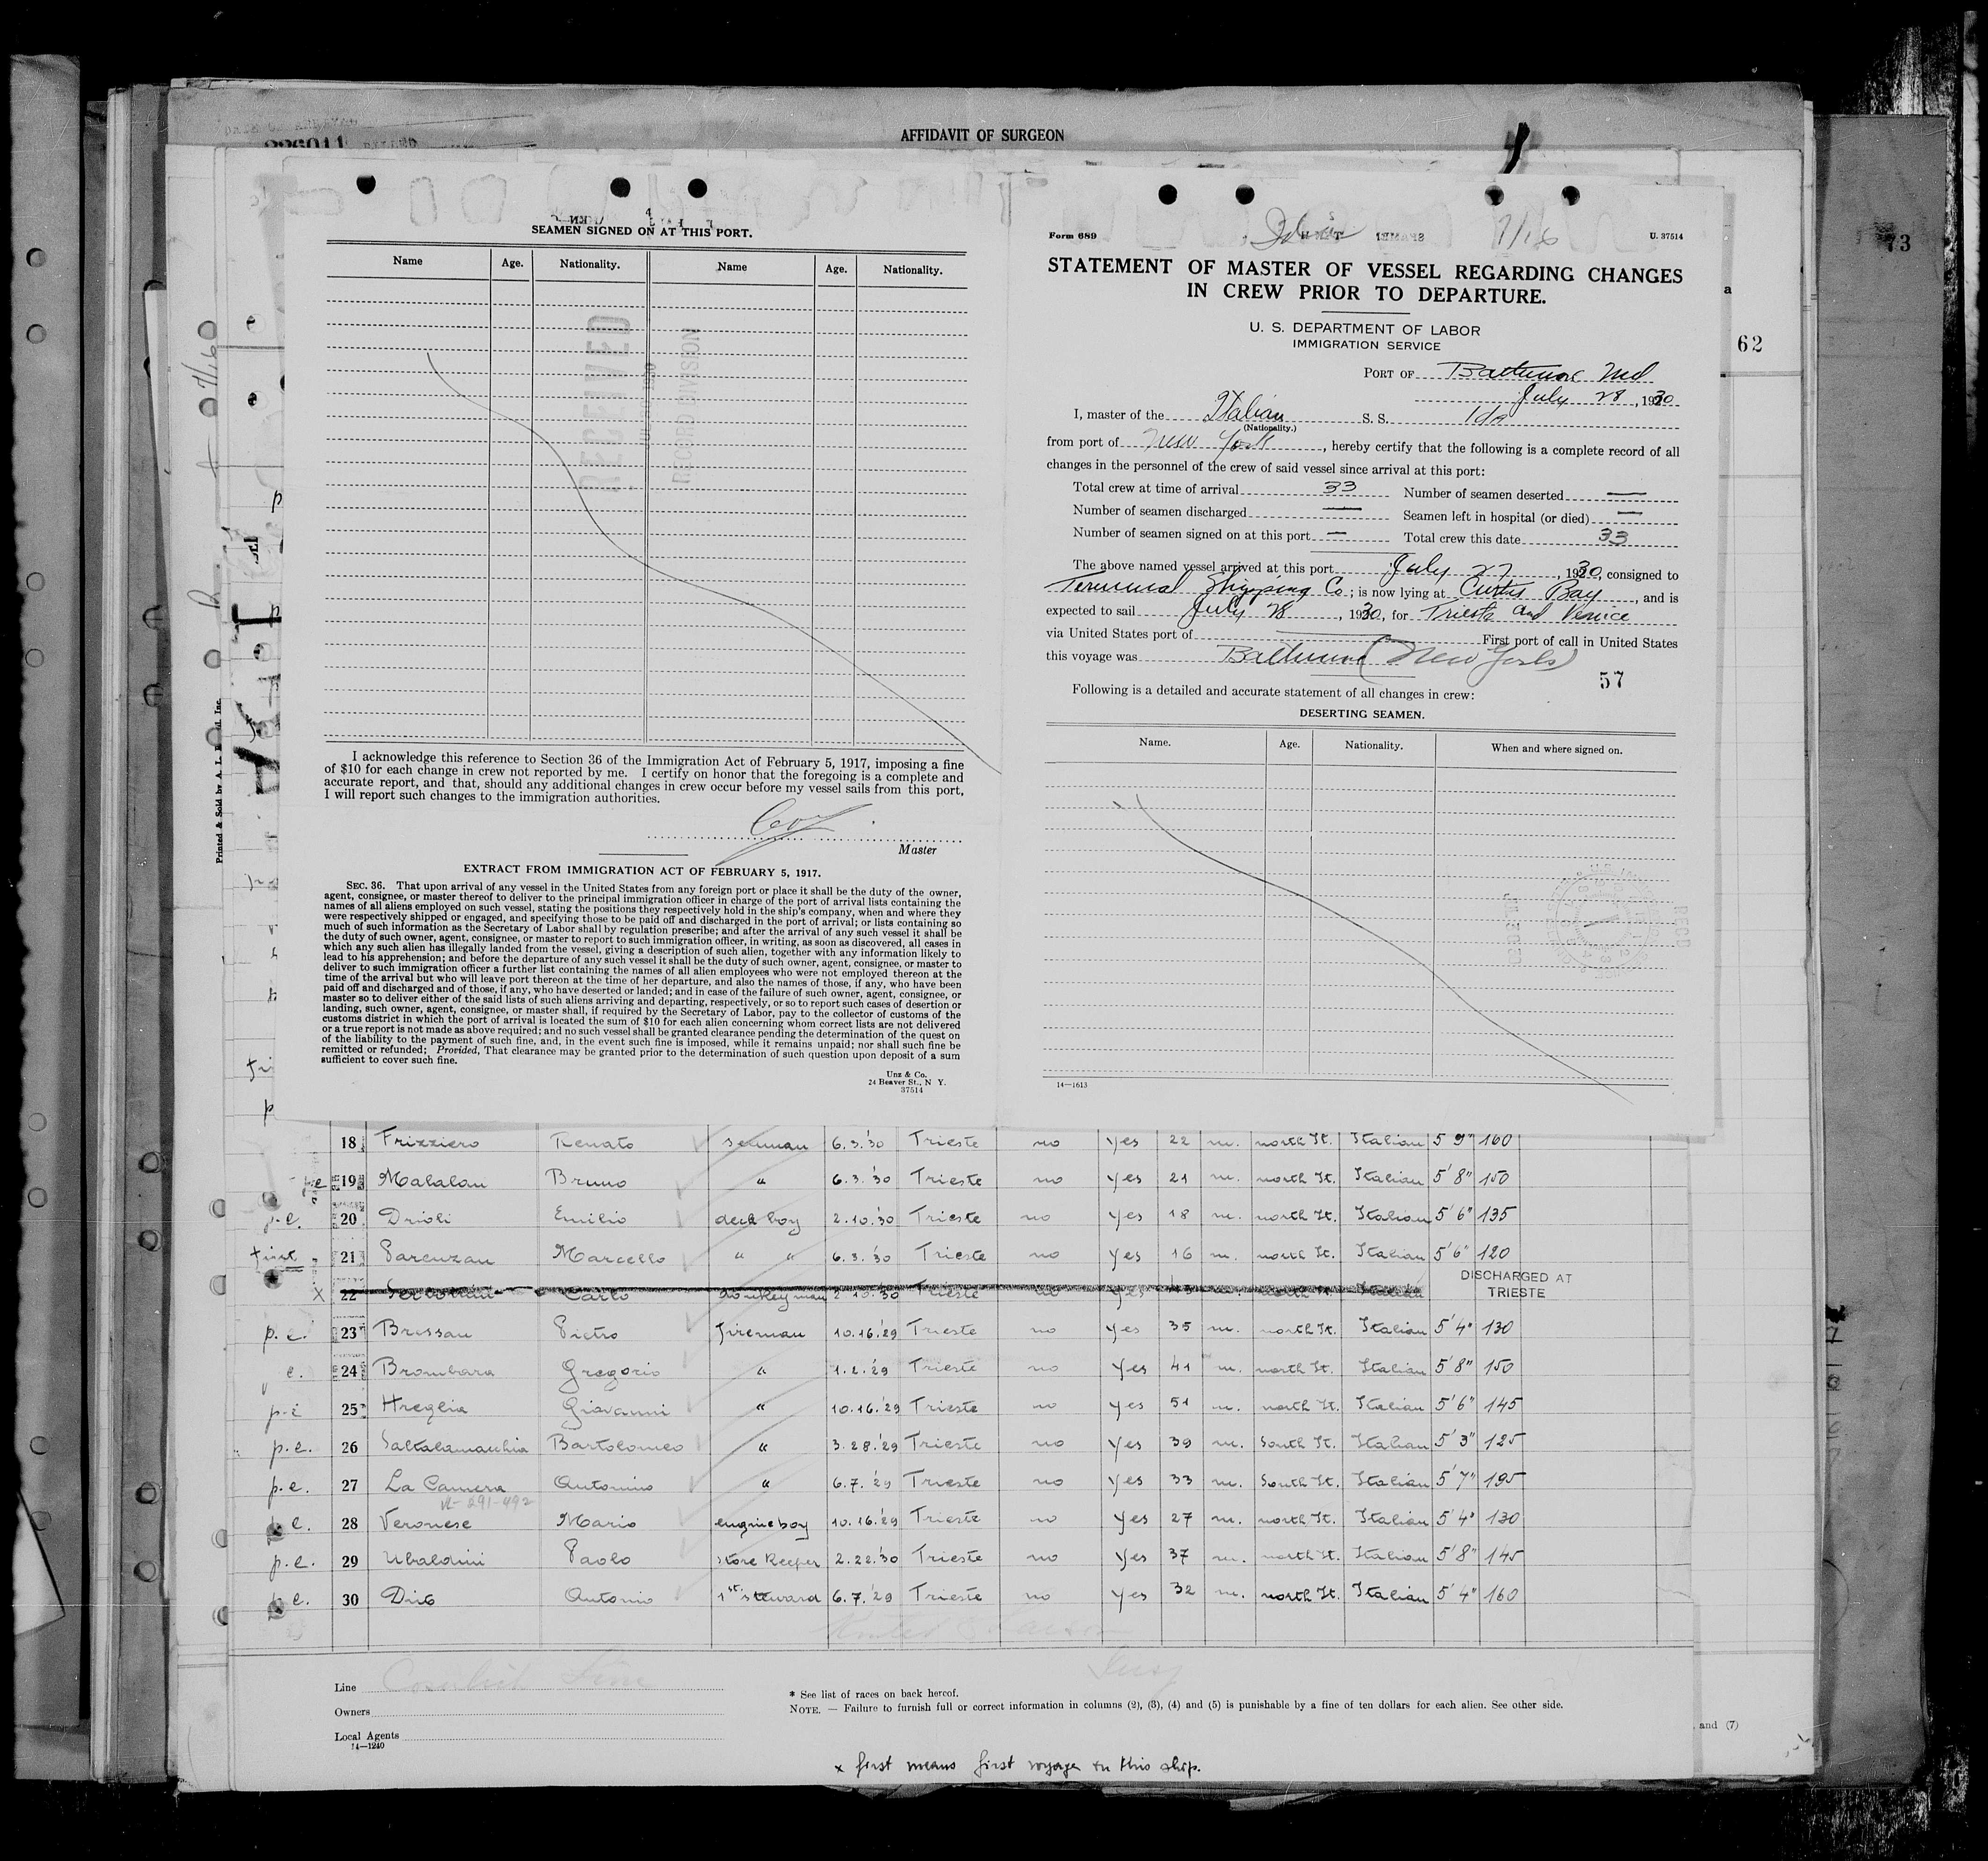 AFFIDAVIT OF SURGEON
SEAMEN SIGNED ON AT THIS PORT.
Name Age. Nationality. Name Age. Nationality.
RECEIVED
RECORD DIVISION
I acknowledge this reference to Section 36 of the Immigration Act of February 5, 1917, imposing a fine
of $10 for each change in crew not reported by me. I certify on honor that the foregoing is a complete and
accurate report, and that, should any additional changes in crew occur before my vessel sails from this port,
I will report such changes to the immigration authorities.
Master
EXTRACT FROM IMMIGRATION ACT OF FEBRUARY 5, 1917.
SEC. 36. That upon arrival of any vessel in the United States from any foreign port or place it shall be the duty of the owner,
agent, consignee, or master thereof to deliver to the principal immigration officer in charge of the port of arrival lists containing the
names of all aliens employed on such vessel, stating the positions they respectively hold in the ship's company, when and where they
were respectively shipped or engaged, and specifying those to be paid off and discharged in the port of arrival; or lists containing so
much of such information as the Secretary of Labor shall by regulation prescribe; and after the arrival of any such vessel it shall be
the duty of such owner, agent, consignee, or master to report to such immigration officer, in writing, as soon as discovered, all cases in
which any such alien has illegally landed from the vessel, giving a description of such alien, together with any information likely to
lead to his apprehension; and before the departure of any such vessel it shall be the duty of such owner, agent, consignee, or master to
deliver to such immigration officer a further list containing the names of all alien employees who were not employed thereon at the
time of the arrival but who will leave port thereon at the time of her departure, and also the names of those, if any, who have been
paid off and discharged and of those, if any, who have deserted or landed; and in case of the failure of such owner, agent, consignee, or
master so to deliver either of the said lists of such aliens arriving and departing, respectively, or so to report such cases of desertion or
landing, such owner, agent, consignee, or master shall, if required by the Secretary of Labor, pay to the collector of customs of the
customs district in which the port of arrival is located the sum of $10 for each alien concerning whom correct lists are not delivered
or a true report is not made as above required; and no such vessel shall be granted clearance pending the determination of the quest on
of the liability to the payment of such fine, and, in the event such fine is imposed, while it remains unpaid; nor shall such fine be
remitted or refunded; Provided, That clearance may be granted prior to the determination of such question upon deposit of a sum
sufficient to cover such fine.
Unz & Co.
24 Beaver St., N Y.
37514
Form 689 7/16 U. 37514
STATEMENT OF MASTER OF VESSEL REGARDING CHANGES
IN CREW PRIOR TO DEPARTURE.
U. S. DEPARTMENT OF LABOR
IMMIGRATION SERVICE
PORT OF Baltimore Md
July 28, 1930
I, master of the Italian S. S. Ida
(Nationality.)
from port of New York, hereby certify that the following is a complete record of all
changes in the personnel of the crew of said vessel since arrival at this port:
Total crew at time of arrival 33 Number of seamen deserted —
Number of seamen discharged — Seamen left in hospital (or died) —
Number of seamen signed on at this port — Total crew this date 33
The above named vessel arrived at this port July 27, 1930, consigned to
Terminal Shipping Co; is now lying at Curtis Bay, and is
expected to sail July 28, 1930, for Trieste and Venice
via United States port of — First port of call in United States
this voyage was Baltimore (New York)
57
Following is a detailed and accurate statement of all changes in crew:
DESERTING SEAMEN.
Name. Age. Nationality. When and where signed on.
14—1613
62
73
18 Frizziero Renato seaman 6.3.'30 Trieste no yes 22 m. north It. Italian 5'9" 160
p.e 19 Malalan Bruno " 6.3.'30 Trieste no yes 21 m. north It. Italian 5'8" 150
p.e. 20 Drioli Emilio deck boy 2.10.'30 Trieste no yes 18 m. north It. Italian 5'6" 135
first 21 Parenzan Marcello " " 6.3.'30 Trieste no yes 16 m. north It. Italian 5'6" 120
X 22 Carlo donkeyman 2.10.'30 Trieste no yes m. north It. Italian DISCHARGED AT
TRIESTE
p.e. 23 Bressan Pietro fireman 10.16.'29 Trieste no yes 35 m. north It. Italian 5'4" 130
e. 24 Brombara Gregorio " 1.2.'29 Trieste no yes 41 m. north It. Italian 5'8" 150
p.e 25 Hreglia Giovanni " 10.16.'29 Trieste no yes 51 m. north It. Italian 5'6" 145
p.e. 26 Saltalamacchia Bartolomeo " 3.28.'29 Trieste no yes 39 m. South It. Italian 5'3" 125
p.e. 27 La Camera Antonino " 6.7.'29 Trieste no yes 33 m. South It. Italian 5'7" 195
p.e. 28 Veronese Mario engine boy 10.16.'29 Trieste no yes 27 m. north It. Italian 5'4" 130
p.e. 29 Ubaldini Paolo store keeper 2.22.'30 Trieste no yes 37 m. north It. Italian 5'8" 145
p.e. 30 Drio Antonio 1st steward 6.7.'29 Trieste no yes 32 m. north It. Italian 5'4" 160
Line Cosulich Line
Owners
Local Agents
14—1240
* See list of races on back hereof.
NOTE. — Failure to furnish full or correct information in columns (2), (3), (4) and (5) is punishable by a fine of ten dollars for each alien. See other side.
, and (7)
x first means first voyage on this ship.